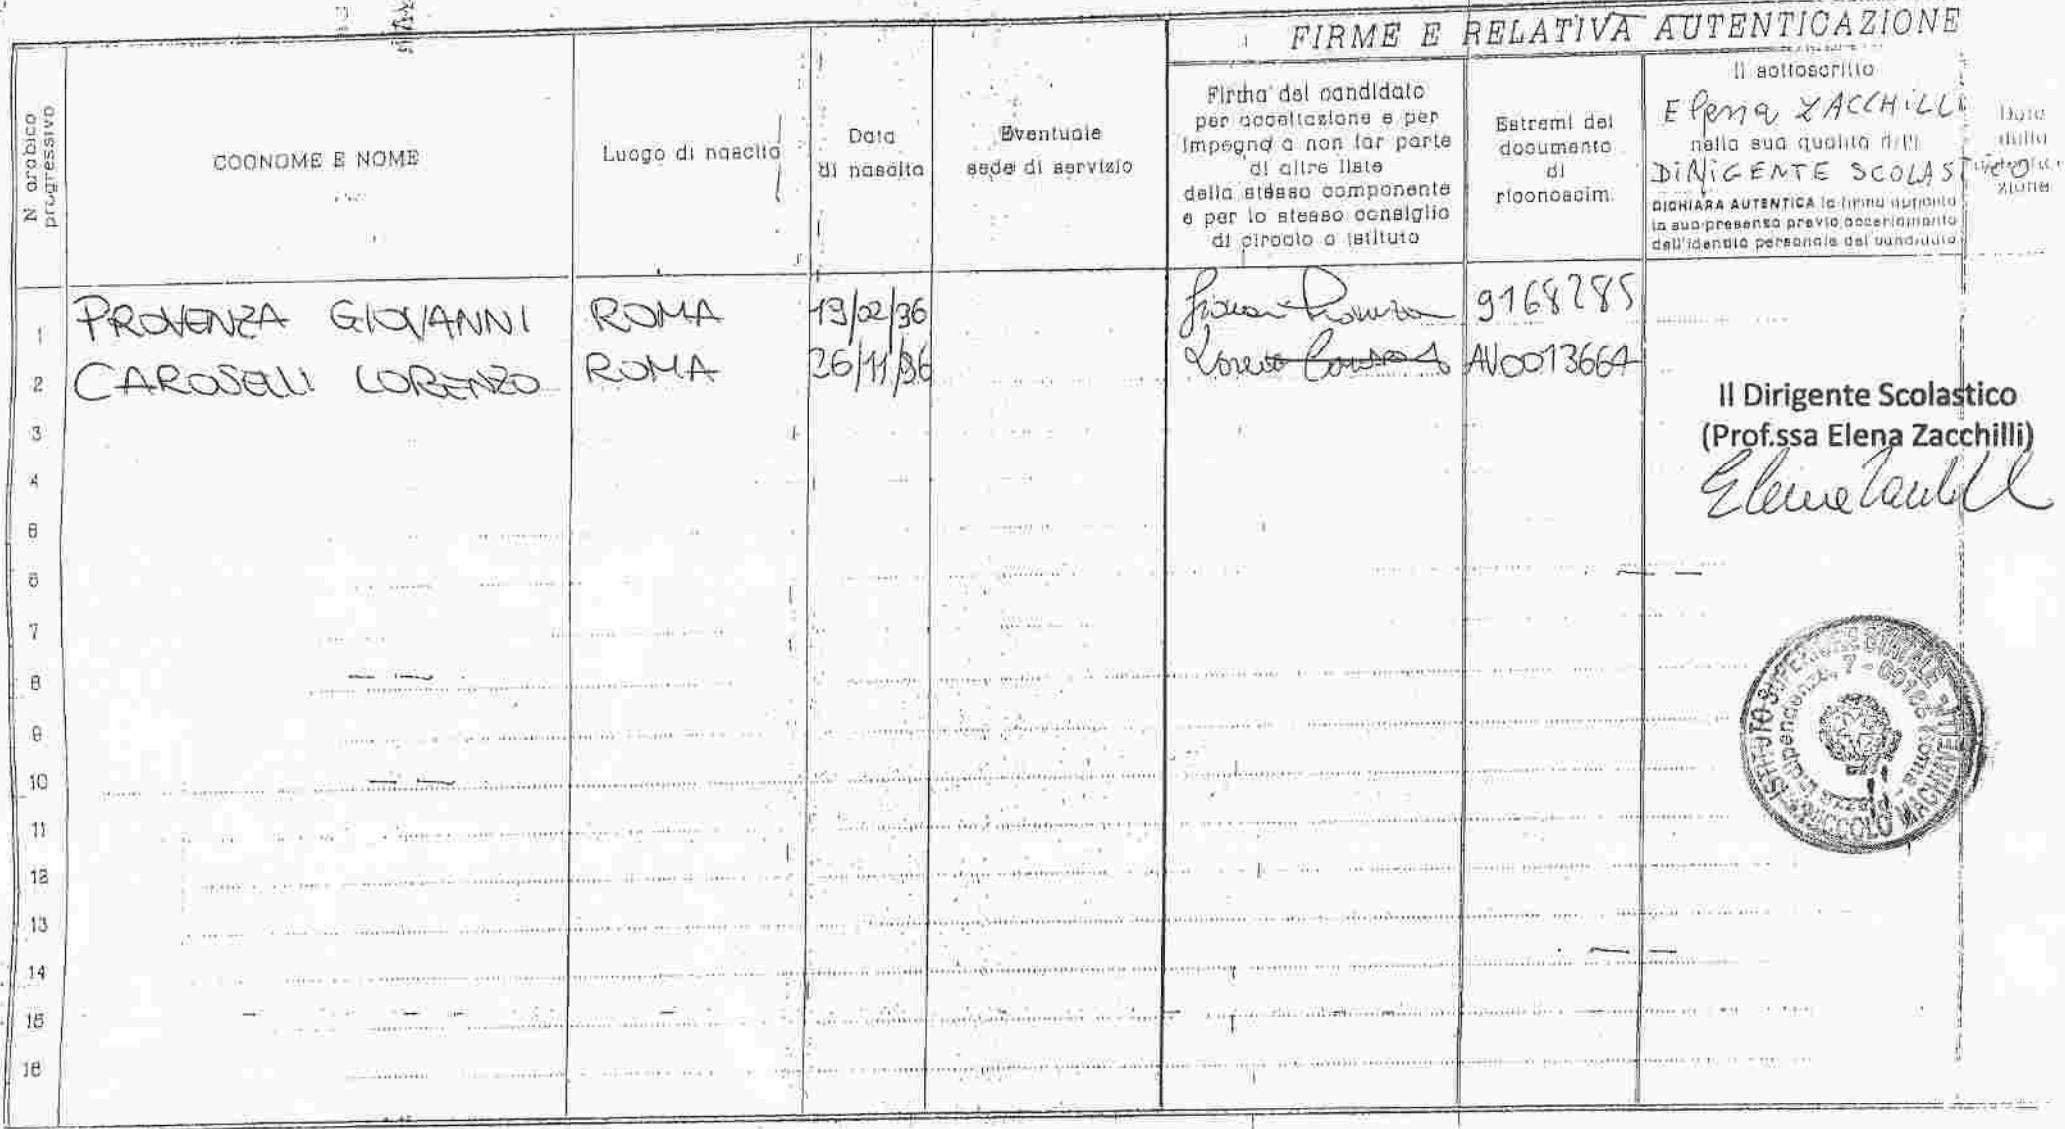 FIRME E RELATIVA AUTENTICAZIONE
N arabico
progressivo
COGNOME E NOME
Luogo di nascita
Data
di nascita
Eventuale
sede di servizio
Firma del candidato
per accettazione e per
impegno a non far parte
di altre liste
della stessa componente
e per lo stesso consiglio
di circolo o istituto
Estremi del
documento
di
riconoscim.
Il sottoscritto
Elena ZACCHILLI
nella sua qualità di
DIRIGENTE SCOLAST
DICHIARA AUTENTICA la firma apposta
in sua presenza previo accertamento
dell'identità personale del candidato
Data
della
zione
1 PROVENZA GIOVANNI ROMA 19/02/96 Giovanni Provenza 9168285
2 CAROSELLI LORENZO ROMA 26/11/96 Lorenzo AV0013664
Il Dirigente Scolastico
(Prof.ssa Elena Zacchilli)
Elena Zacchilli
3
4
5
6
7
8
9
10
11
12
13
14
15
16
ISTITUTO SUPERIORE STATALE
NICCOLO MACHIAVELLI
Indipendenza, 7 - 00185 Roma